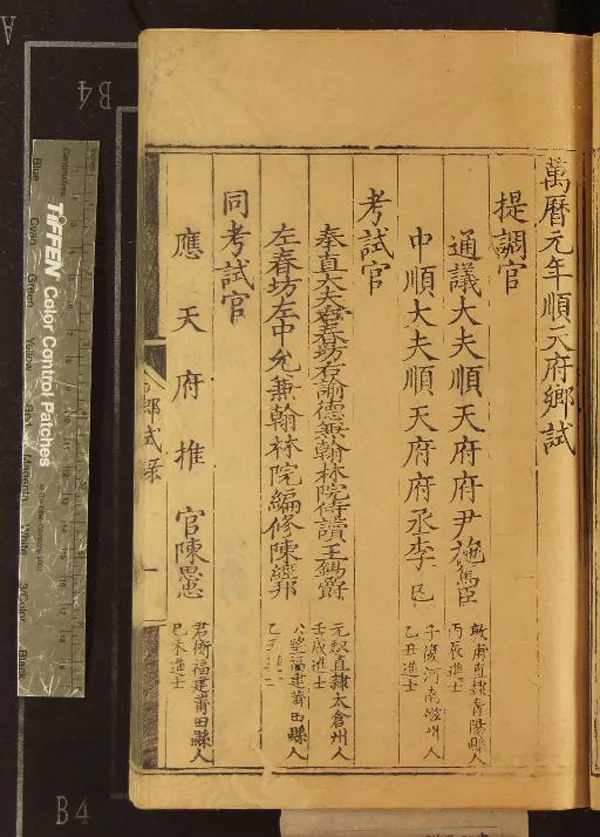 萬曆元年順天府鄉試
提調官
通議大夫順天府府尹施篤臣
敦甫直隸青陽縣人
丙辰進士
中順大夫順天府府丞李
子復河南人
乙丑進士
考試官
奉直大夫右春坊右諭德兼翰林院侍讀王錫爵
元馭直隸太倉州人
壬戌進士
左春坊左中允兼翰林院編修陳經邦
公望福建莆田縣人
乙丑
同考試官
應天府推官陳思忠
君衡福建莆田縣人
己未進士
鄉試錄
一
TIFFEN Color Control Patches
Centimetres
Blue
Cyan
Green
Yellow
Red
Magenta
White
3/Color
Black
A
B4
B4